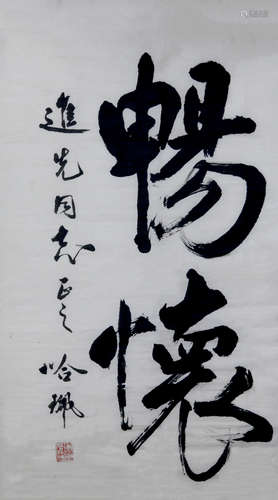 暢懷
進先同志正之
哈珮